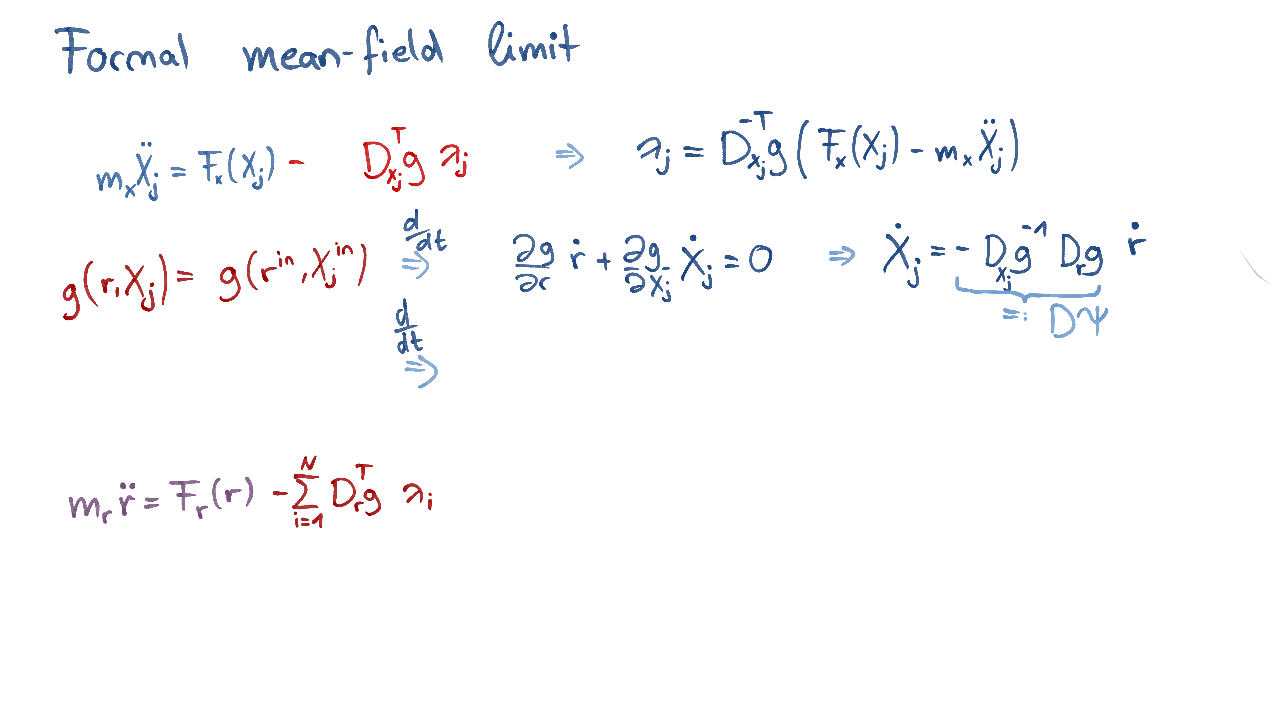 Formal mean-field limit
m_x Ẍ_j = F_x(X_j) - D_{X_j}^T g λ_j ⇒ λ_j = D_{X_j}^{-T} g ( F_x(X_j) - m_x Ẍ_j )
g(r, X_j) = g(r^{in}, X_j^{in}) d/dt ⇒ ∂g/∂r ṙ + ∂g/∂X_j Ẋ_j = 0 ⇒ Ẋ_j = - D_{X_j} g^{-1} D_r g ṙ
=: DΨ
d/dt ⇒
m_r r̈ = F_r(r) - ∑_{i=1}^N D_r^T g λ_i